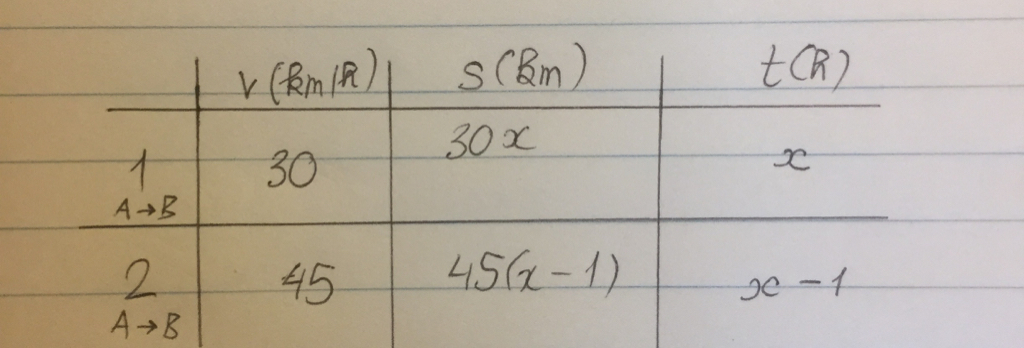 v(km/h) s(km) t(h)
1 30 30x x
A→B
2 45 45(x-1) x-1
A→B